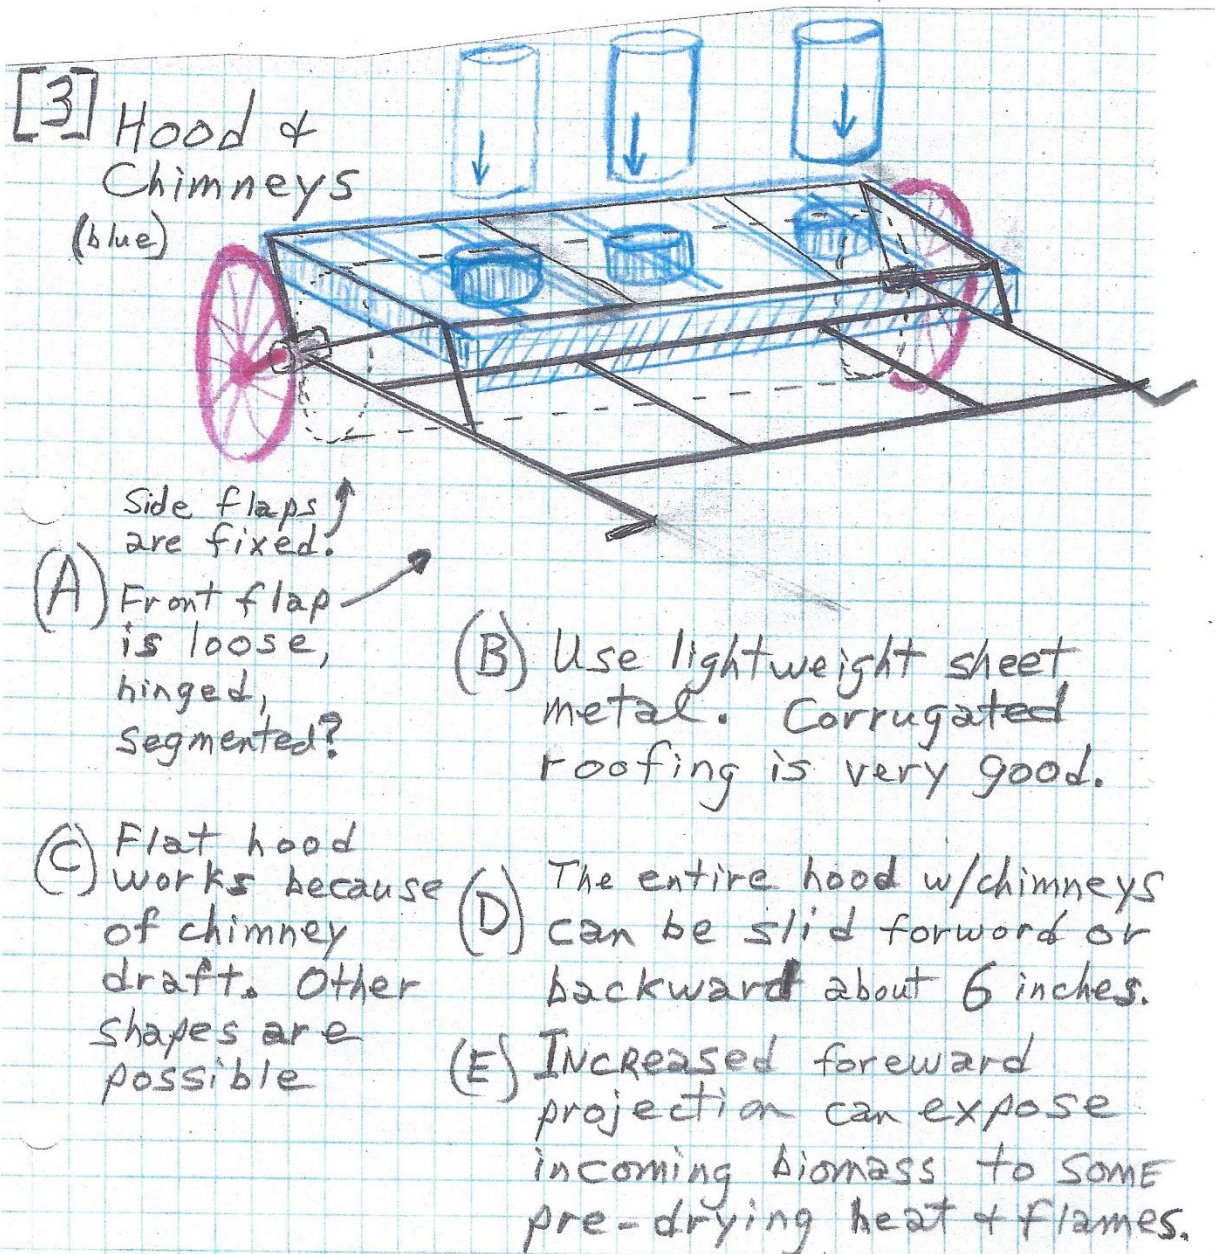 [3] Hood &
Chimneys
(blue)
Side flaps
are fixed.
(A) Front flap
is loose,
hinged,
segmented?
(B) Use lightweight sheet
metal. Corrugated
roofing is very good.
(C) Flat hood
works because
of chimney
draft. Other
shapes are
possible
(D) The entire hood w/chimneys
can be slid forword or
backward about 6 inches.
(E) INCREASED foreward
projection can expose
incoming biomass to SOME
pre-drying heat & flames.